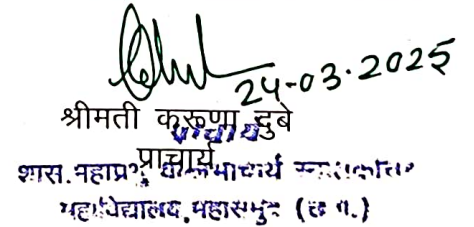 24-03-2025
श्रीमती करूणा दुबे
प्राचार्य
प्राचार्य
शास. महाप्रभु वल्लभाचार्य स्नातकोत्तर
महाविद्यालय, महासमुंद (छ.ग.)